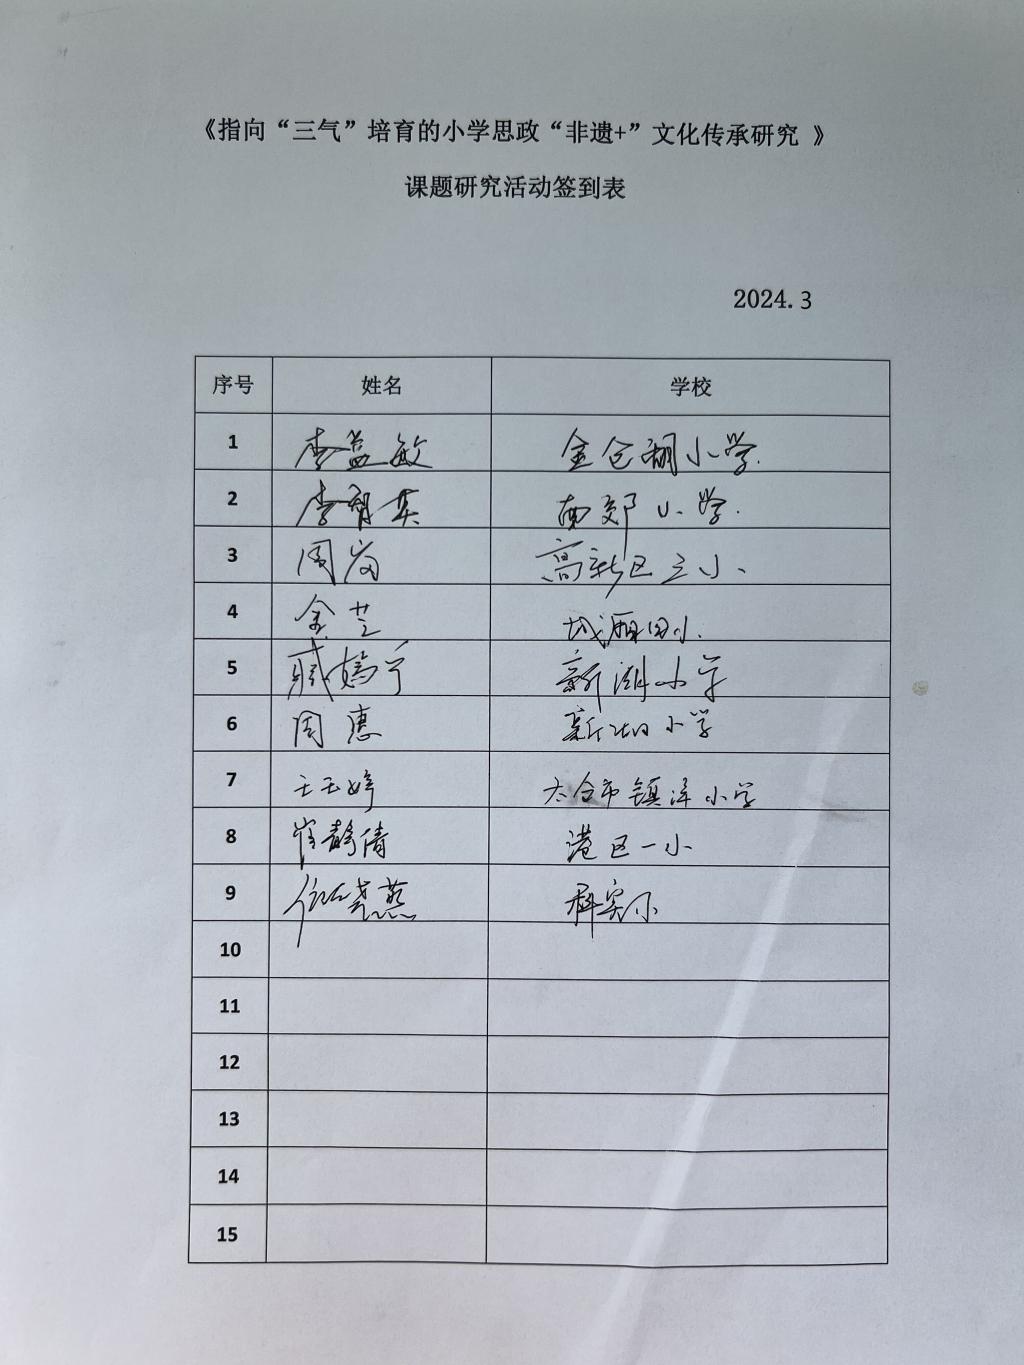 《指向“三气”培育的小学思政“非遗+”文化传承研究 》
课题研究活动签到表
2024.3
序号 姓名 学校
1 李益敏 金仓湖小学.
2 李 英 南郊小学.
3 周岗 高新区三小、
4 金芝 城厢四小.
5 戚嫣 新湖小学
6 周惠 新湖小学
7 王玉婷 太仓市镇洋小学
8 崔静倩 港区一小
9 燕 科实小
10
11
12
13
14
15